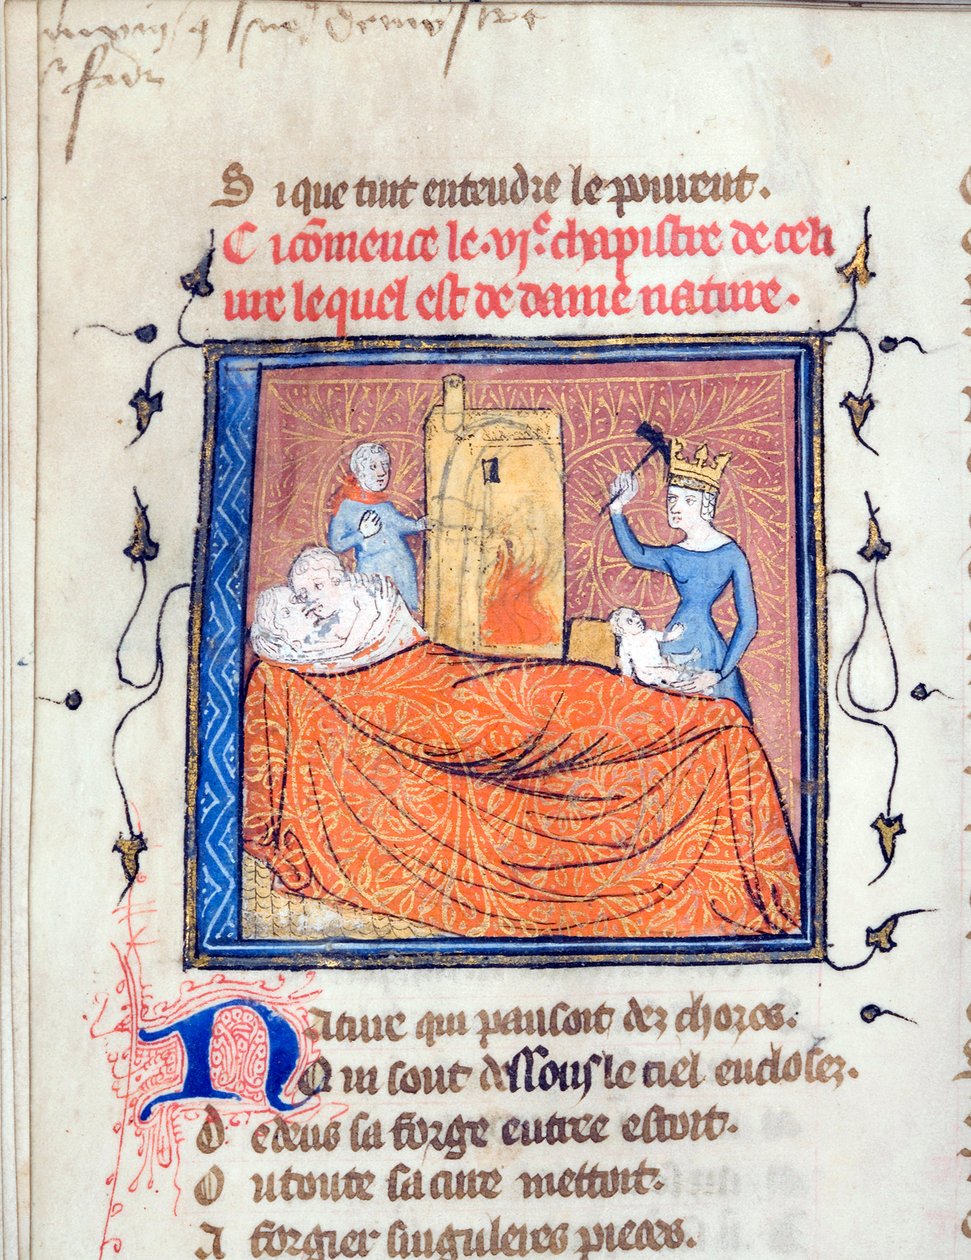 S ique tuit entendre le peuvent.
Ci cõmence le .vi.e chapistre de ce li
ure lequel est de dame nature.
Nature qui pansoit dez chozos.
Qui sont dessouz le ciel enclosez.
Dedens sa forge entree estoit.
Ou toute sa cure mettoit.
A forgier singulieres pieces.